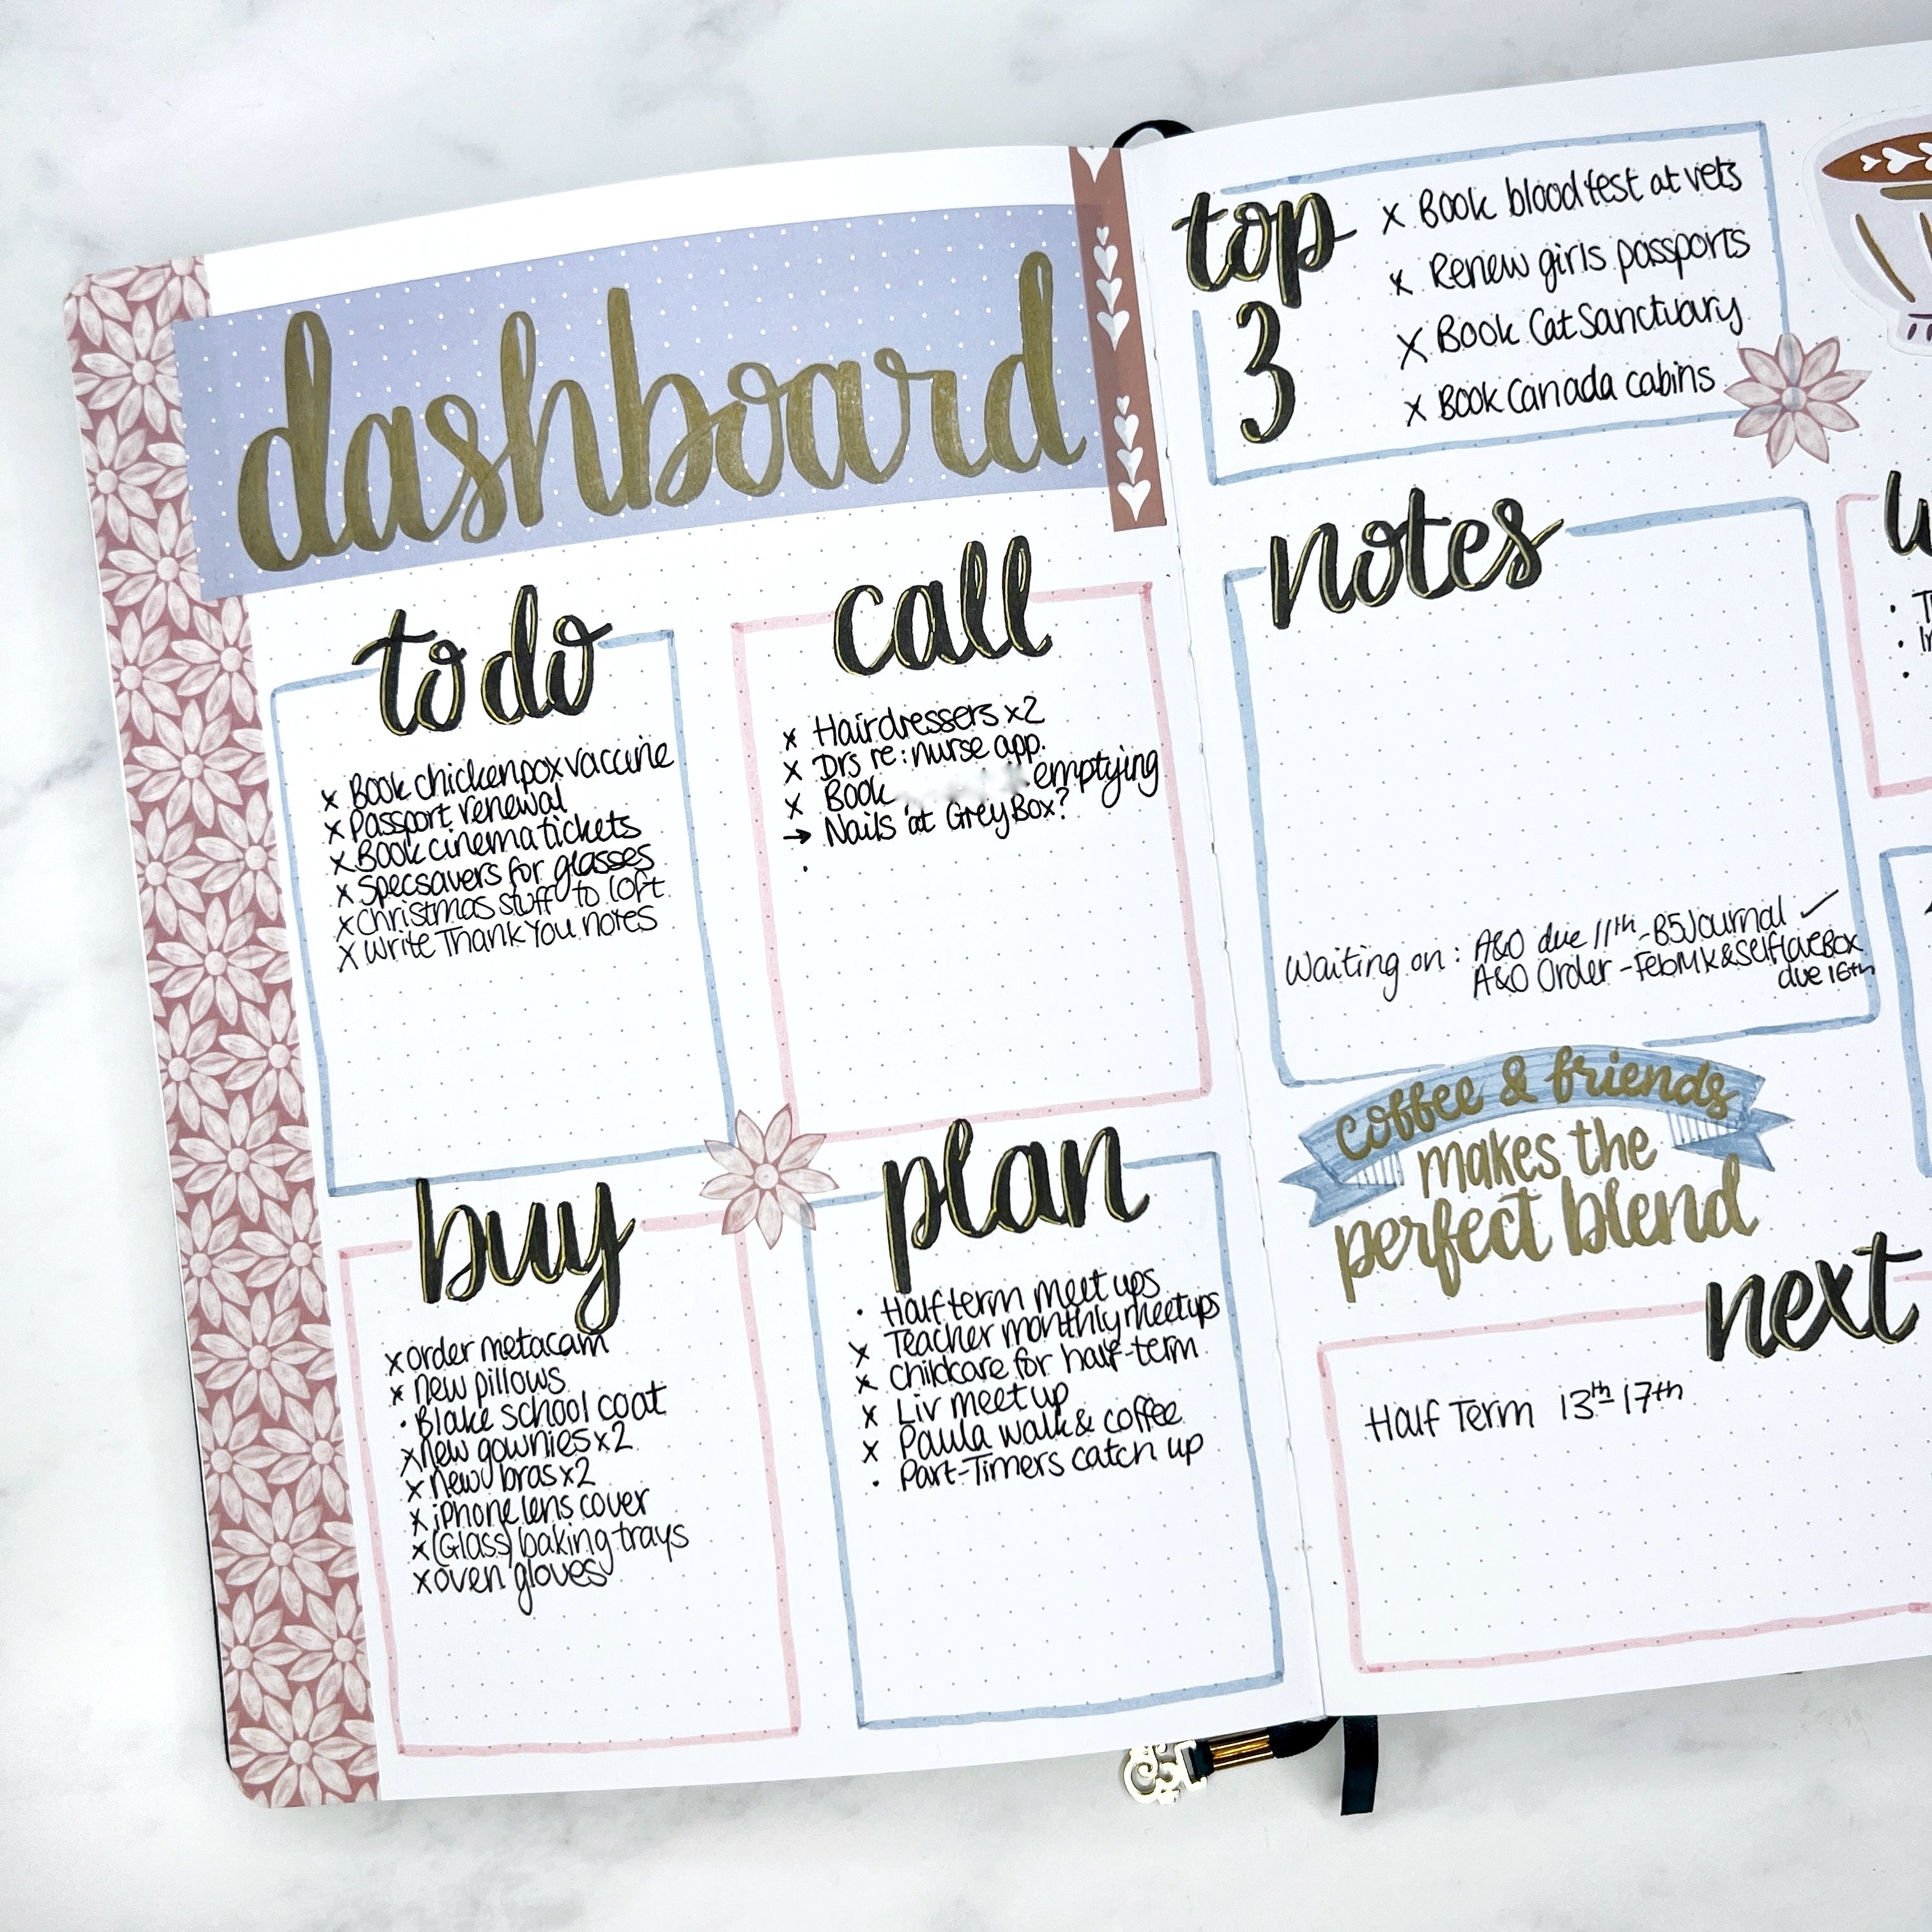 dashboard
to do
x Book chickenpox vaccine
x Passport renewal
x Book cinema tickets
x Specsavers for glasses
x Christmas stuff to loft
x Write Thank You notes
call
x Hairdressers x2
x Drs re: nurse app.
x Book emptying
→ Nails at Grey Box?
·
buy
x order metacam
x new pillows
· Blake school coat
x New gownies x2
x new bras x2
x iPhone lens cover
x (Glass) baking trays
x oven gloves
plan
· Half term meet ups
x Teacher monthly meetups
x Childcare for half-term
x Liv meet up
x Paula walk & coffee
· Part-Timers catch up
top
3
x Book blood test at vets
x Renew girls passports
x Book Cat Sanctuary
x Book Canada cabins
notes
Waiting on: A&O due 11th - B5 Journal ✓
A&O Order - Feb MK & Selflove Box
due 16th
coffee & friends
makes the
perfect blend
next
Half Term 13th 17th